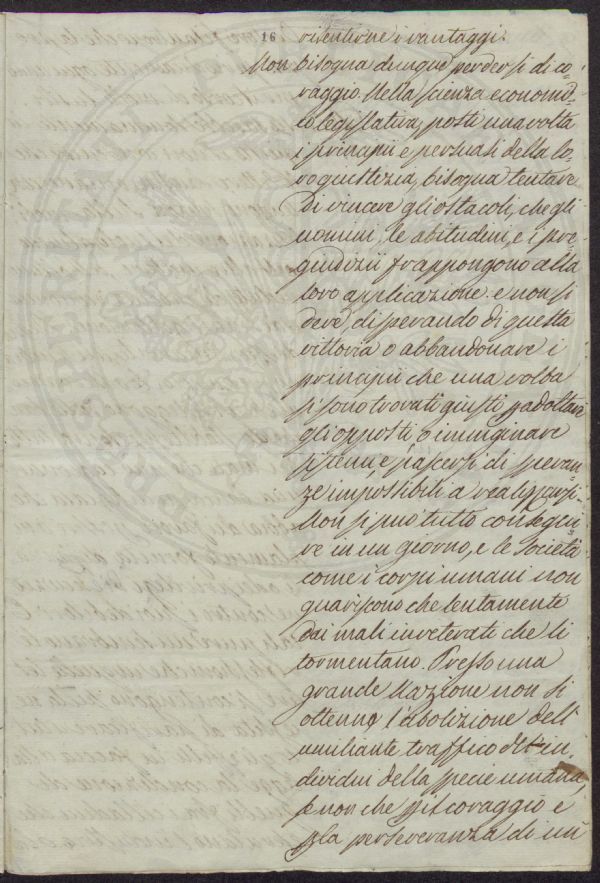 16 risentirne i vantaggi.
Non bisogna dunque perdersi di co-
raggio. Nella scienza economi-
co legislativa, posti una volta
i principii e persuasi della lo-
ro giustizia, bisogna tentare
di vincere gli ostacoli, che gli
uomini, le abitudini, e i pre-
giudizii frappongono alla
loro applicazione e non si
deve, disperando di questa
vittoria o abbandonare i
principii che una volta
si sono trovati giusti, adottare
gli opposti o imaginare
sistemi, e pascersi di speran-
ze impossibili a realizzarsi.
Non si può tutto consegui-
re in un giorno, e le Società
come i corpi umani non
guariscono che lentamente
dai mali inveterati che li
tormentano. Presso una
grande Nazione non si
ottenne l'abolizione dell'
umiliante traffico d' in-
dividui della specie umana,
se non che pel coraggio e
la perseveranza di un